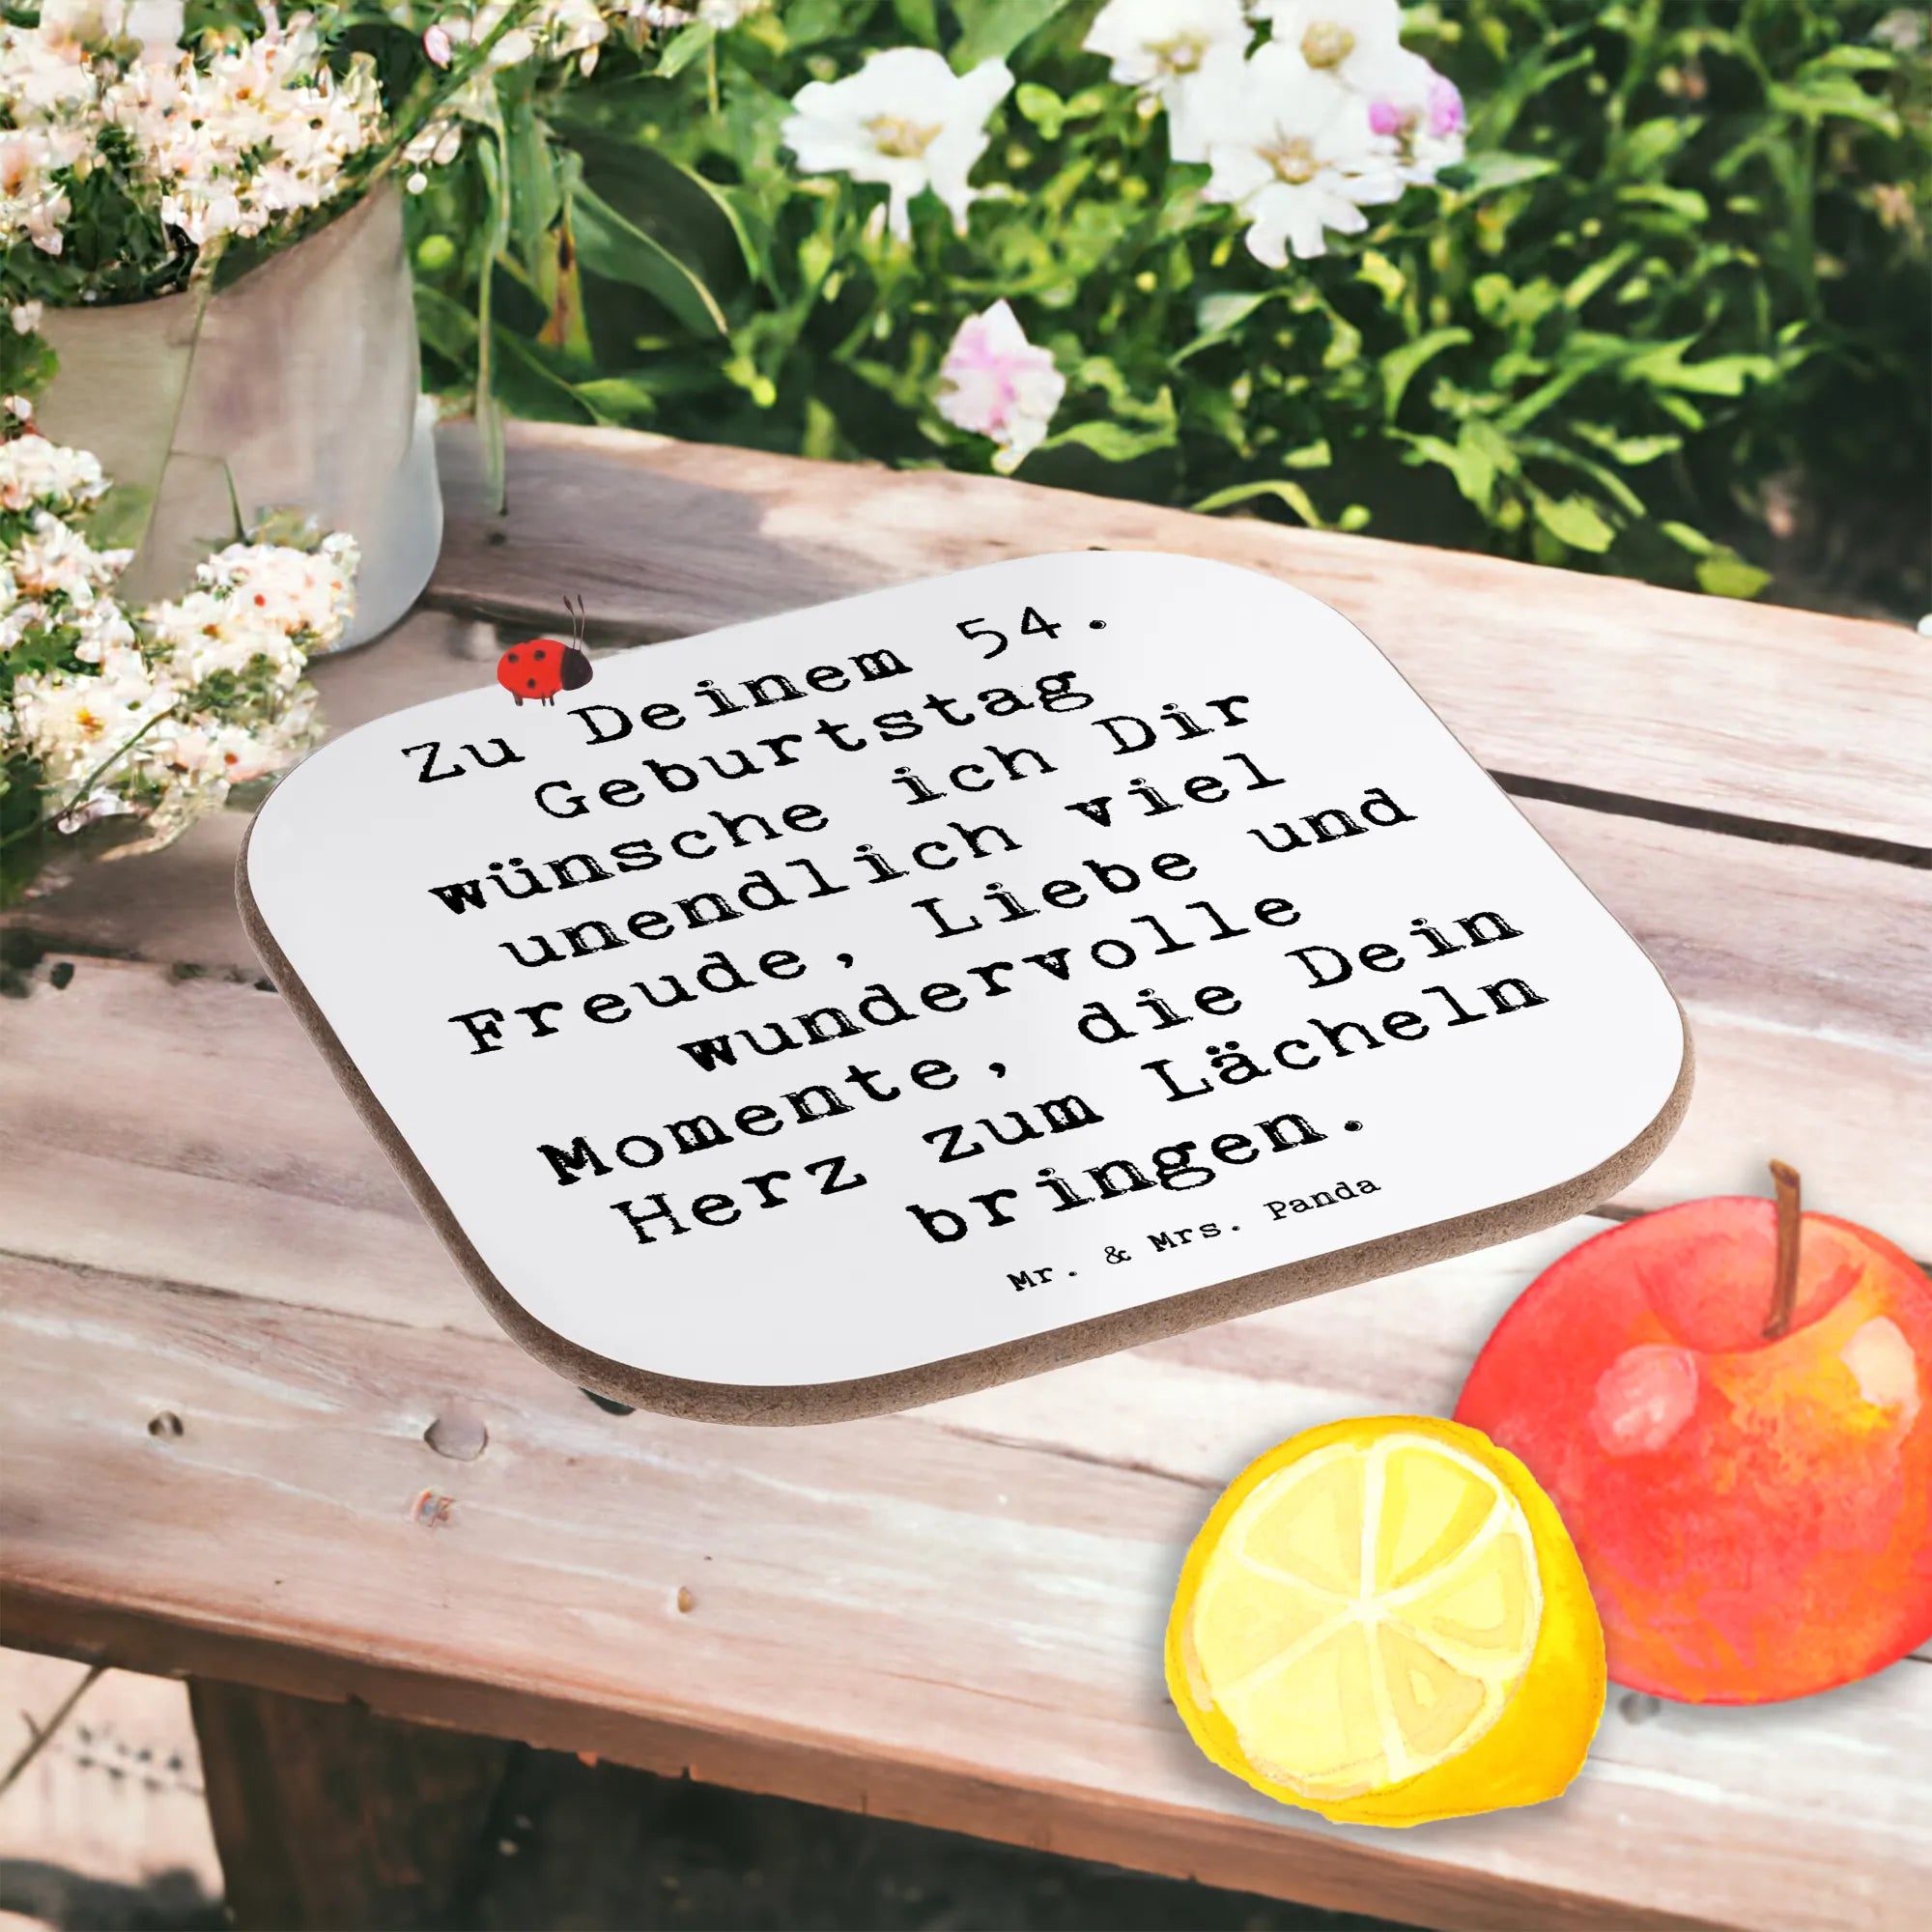 Zu Deinem 54.
Geburtstag
wünsche ich Dir
unendlich viel
Freude, Liebe und
wundervolle
Momente, die Dein
Herz zum Lächeln
bringen.
Mr. & Mrs. Panda